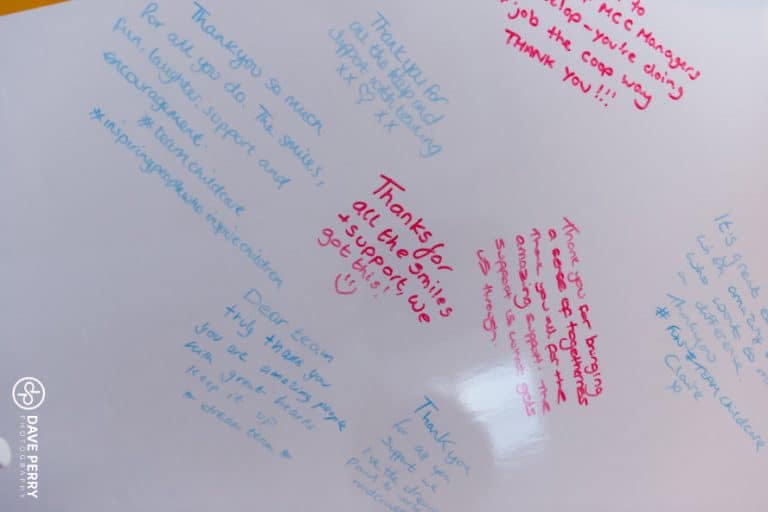 Thankyou so much
for all you do. The smiles,
fun, laughter, support and
encouragement.
#teamchildcare
#inspiringpeoplewho inspire children
Thankyou for
all the help and
support
xx ♡ xx
to
MCC Managers
you're doing
job the coop way
THANK YOU!!!
Thanks for
all the smiles
+ support, we
got this!
☺
Thank you for bringing
a sense of togetherness
Thank you all for the
amazing support. The
support is what gets
us through.
It's great
amazing
who want to
a difference
Thankyou
childcare
Claire
xo
Dear team
truly thank you
you are amazing people
with great hearts
keep it up
dream team
Thank you
for all your
support we
DAVE PERRY
PHOTOGRAPHY